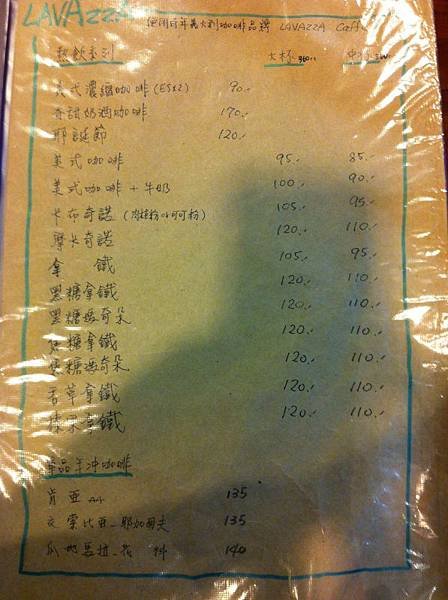 LAVAZZA 使用百年義大利咖啡品牌 LAVAZZA Caff
熱飲系列 大杯360cc 中杯
義式濃縮咖啡(ESX2) 90.-
奇甜奶酒咖啡 170.-
耶誕節 120.-
美式咖啡 95.- 85.-
美式咖啡+牛奶 100.- 90.-
卡布奇諾(肉桂粉or可可粉) 105.- 95.-
摩卡奇諾 120.- 110.-
拿 鐵 105.- 95.-
黑糖拿鐵 120.- 110.-
黑糖瑪奇朵 120.- 110.-
焦糖拿鐵 120.- 110.-
焦糖瑪奇朵 120.- 110.-
香草拿鐵 120.- 110.-
榛果拿鐵 120.- 110.-
單品手沖咖啡
肯亞 AA 135
衣索比亞-耶加雪夫 135
瓜地馬拉-花 神 140